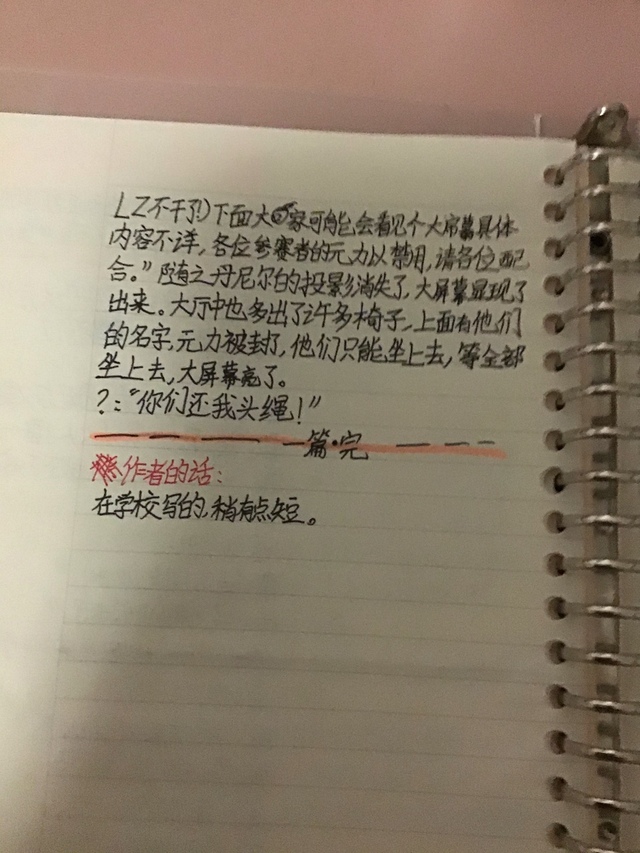 LZ不干了!)下面大家可能会看见个大屏幕具体
内容不详,各位参赛者的元力以禁用,请各位配
合。”随之丹尼尔的投影消失了,大屏幕显现了
出来。大厅中也多出了许多椅子,上面有他们
的名字,元力被封了,他们只能坐上去,等全部
坐上去,大屏幕亮了。
?:“你们还我头绳!”
一篇·完
作者的话:
在学校写的,稍有点短。